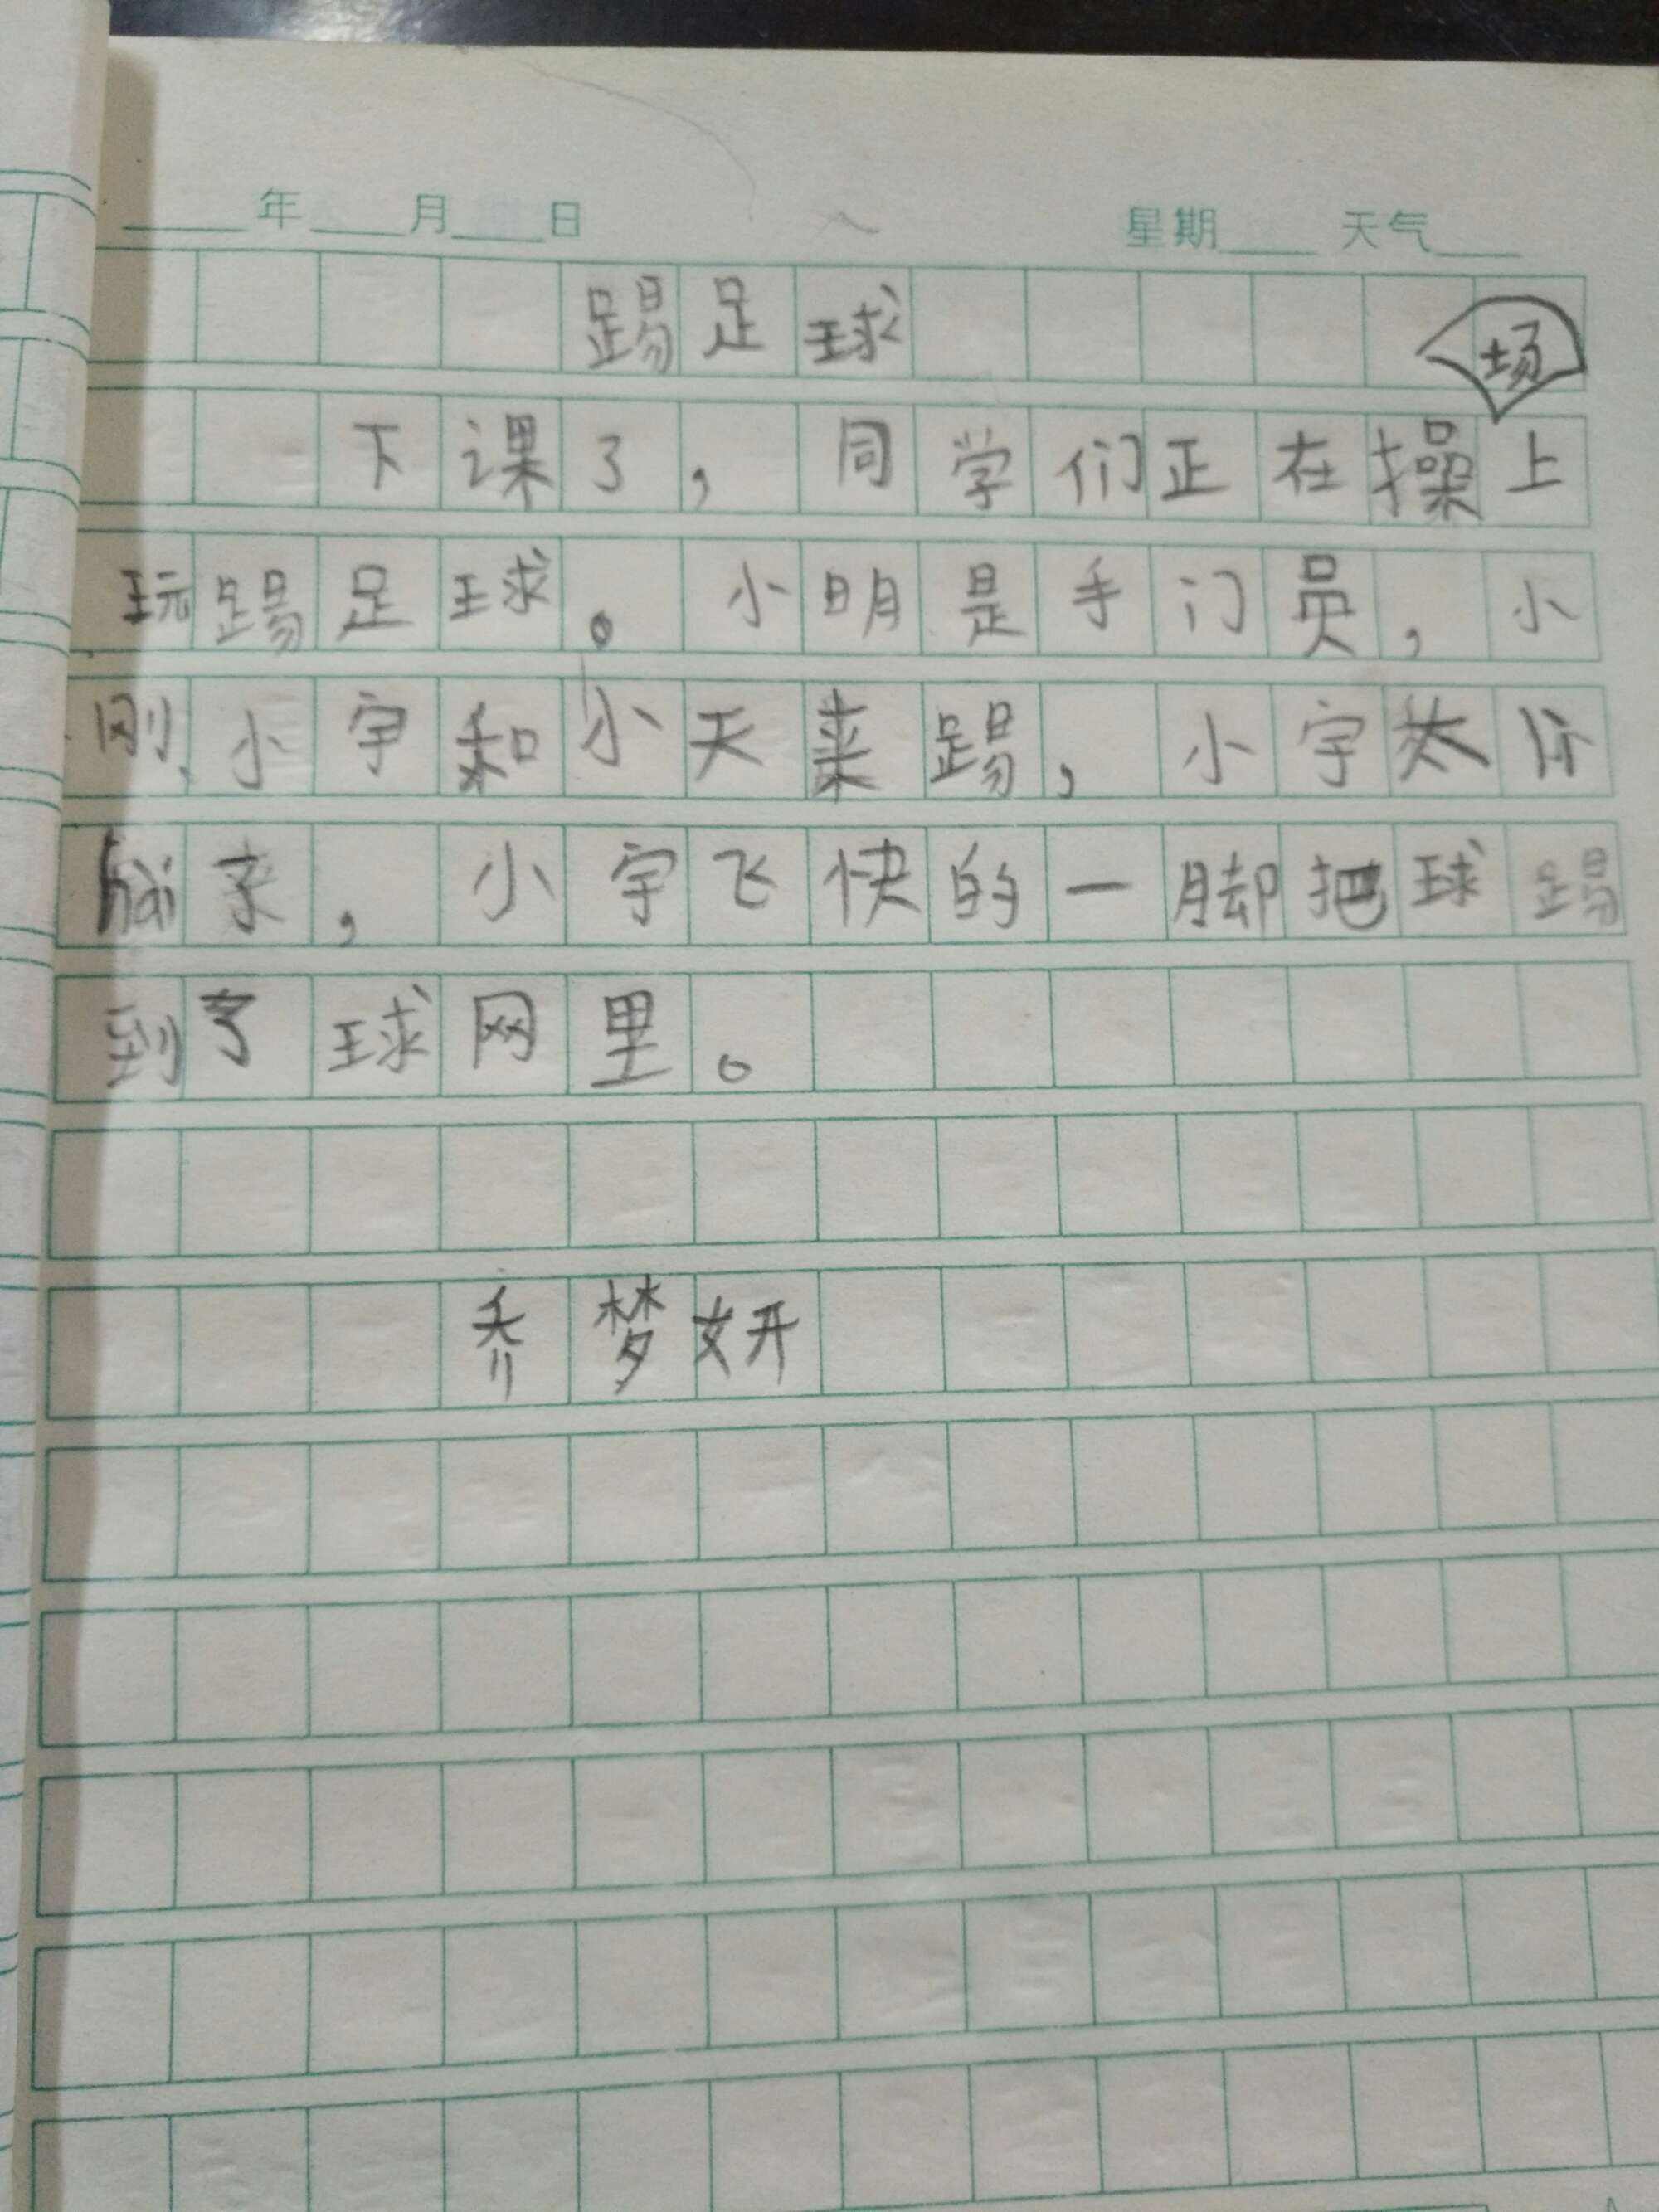 年 月 日 星期 天气
踢足球
场
下课了，同学们正在操上
玩踢足球。小明是手门员，小
刚、小宇和小天来踢，小宇太
来，小宇飞快的一脚把球踢
到了球网里。
乔梦妍